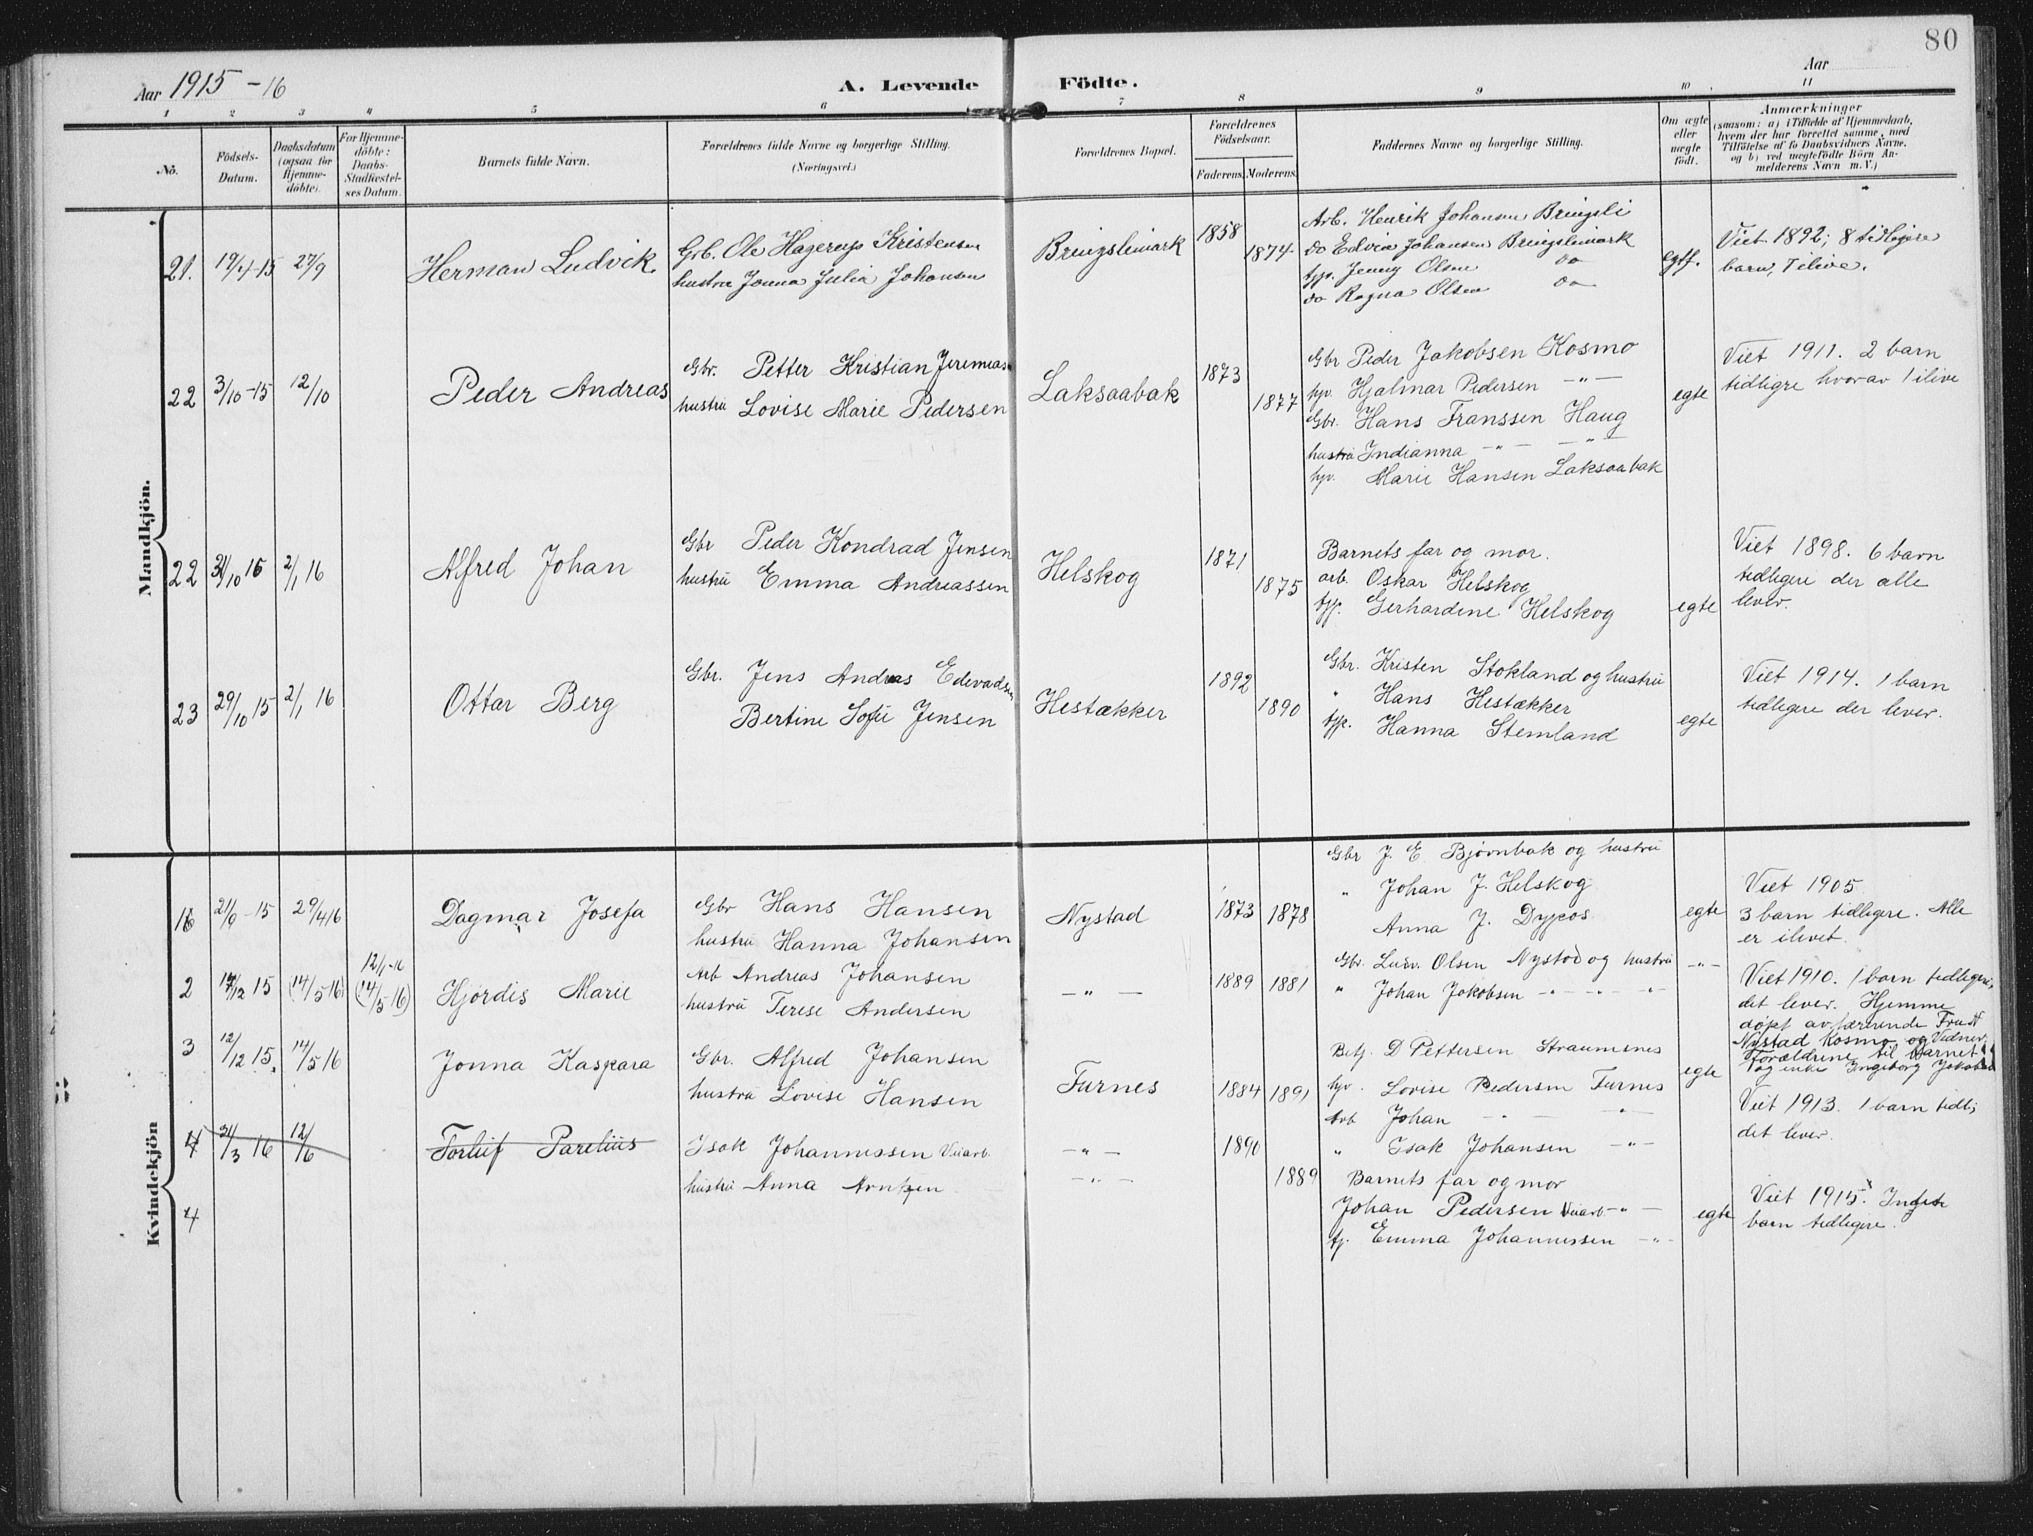 80
Aar 1915-16
A. Levende Födte.
Aar
1 2 3 4 5 6 7 8 9 10 11
No.
Födsels-Datum.
Daabsdatum (ogsaa for Hjemme-döbte).
For Hjemme-döbte: Daabs-Stadfæstel-ses Datum.
Barnets fulde Navn.
Forældrenes fulde Navne og borgerlige Stilling.
(Næringsvei.)
Forældrenes Bopæl.
Forældrenes Födselsaar.
Faderens. Moderens.
Faddernes Navne og borgerlige Stilling.
Om ægte eller uægte födt.
Anmærkninger
(saasom: a) i Tilfælde af Hjemmedaab, hvem der har forrettet samme, med Tilföielse af to Daabsvidners Navne, og b) ved uægtefödte Börn An-melderens Navn m. V.)
Mandkjön.
21. 19/4-15 27/9 Herman Ludvik
Grb. Ole Hagerup Kristensen
hustru Jonna Julia Johansen
Bringslimark 1858 1874
Arb. Henrik Johansen Bringsli
do Edvin Johansen Bringslimark
tjp. Jenny Olsen do
do Ragna Olsen do
egtf.
Viet 1892; 8 tidligere
barn, 7 ilive.
22 3/10-15 12/10 Peder Andreas
Gbr. Petter Kristian Jeremias
hustru Lovise Marie Pedersen
Laksaabak 1873 1877
Gbr Peder Jakobsen Kosmo
hjv. Hjalmar Pedersen -"-
Gbr. Hans Franssen Haug
hustru Indianna -"- -"-
hjv. Marie Hansen Laksaabak
egte
Viet 1911. 2 barn
tidligre hvorav 1 ilive
22 31/10 15 2/1 16 Alfred Johan
Gbr Peder Kondrad Jensen
hustru Emma Andreassen
Helskog 1871 1875
Barnets far og mor.
arb. Oskar Helskog
tjp. Gerhardine Helskog
egte
Viet 1898. 6 barn
tidligere der alle
lever.
23 29/10 15 2/1 16 Ottar Berg
Gbr. Jens Andreas Edevadsen
Bertine Sofie Jensen
Hestækker 1892 1890
Gbr. Kristen Stokland og hustru
" Hans Hestækker
tjp. Hanna Stemland
egte
Viet 1914. 1 barn
tidligere der lever.
Kvindekjön
16 21/9-15 29/4 16 Dagmar Josefa
Gbr Hans Hansen
hustru Hanna Johansen
Nystad 1873 1878
Gbr J. E. Bjørnbak og hustru
" Johan J. Helskog
Anna J.
egte
Viet 1905
3 barn tidligere. Alle
er ilivet.
2 17/12 15 (14/5 16) 12/1-16 (14/5 16) Hjørdis Marie
Arb Andreas Johansen
hustru Terese Andersen
-"- 1889 1881
Gbr. Ludv. Olsen Nystad og hustru
" Johan Jakobsen -"- -"- -"-
-"-
Viet 1910. 1 barn tidligere,
det lever. Hjemme
døpt av lærerinde Fru N
Nystad Kosmo og Vidner
Forældrene til barnet
og enke Ingeborg Jakobsen
3 12/12 15. 14/5 16 Jonna Kaspara
Gbr. Alfred Johansen
hustru Lovise Hansen
Furnes 1884 1891
Betj. D Pettersen Straumsnes
hjv. Lovise Pedersen Furnes
Arb Johan -"- -"-
egte
Viet 1913. 1 barn tidl;
det lever.
4 31/3 16 12/6 Torleif Parelius
Isak Johannessen Veiarb.
hustru Anna Arntzen
-"- 1890
-"- 1889
" Isak Johansen -"-
Barnets far og mor
Johan Pedersen Veiarb -"-
tj. Emma Johannessen -"-
egte
Viet 1915. Inget
barn tidligere.
4